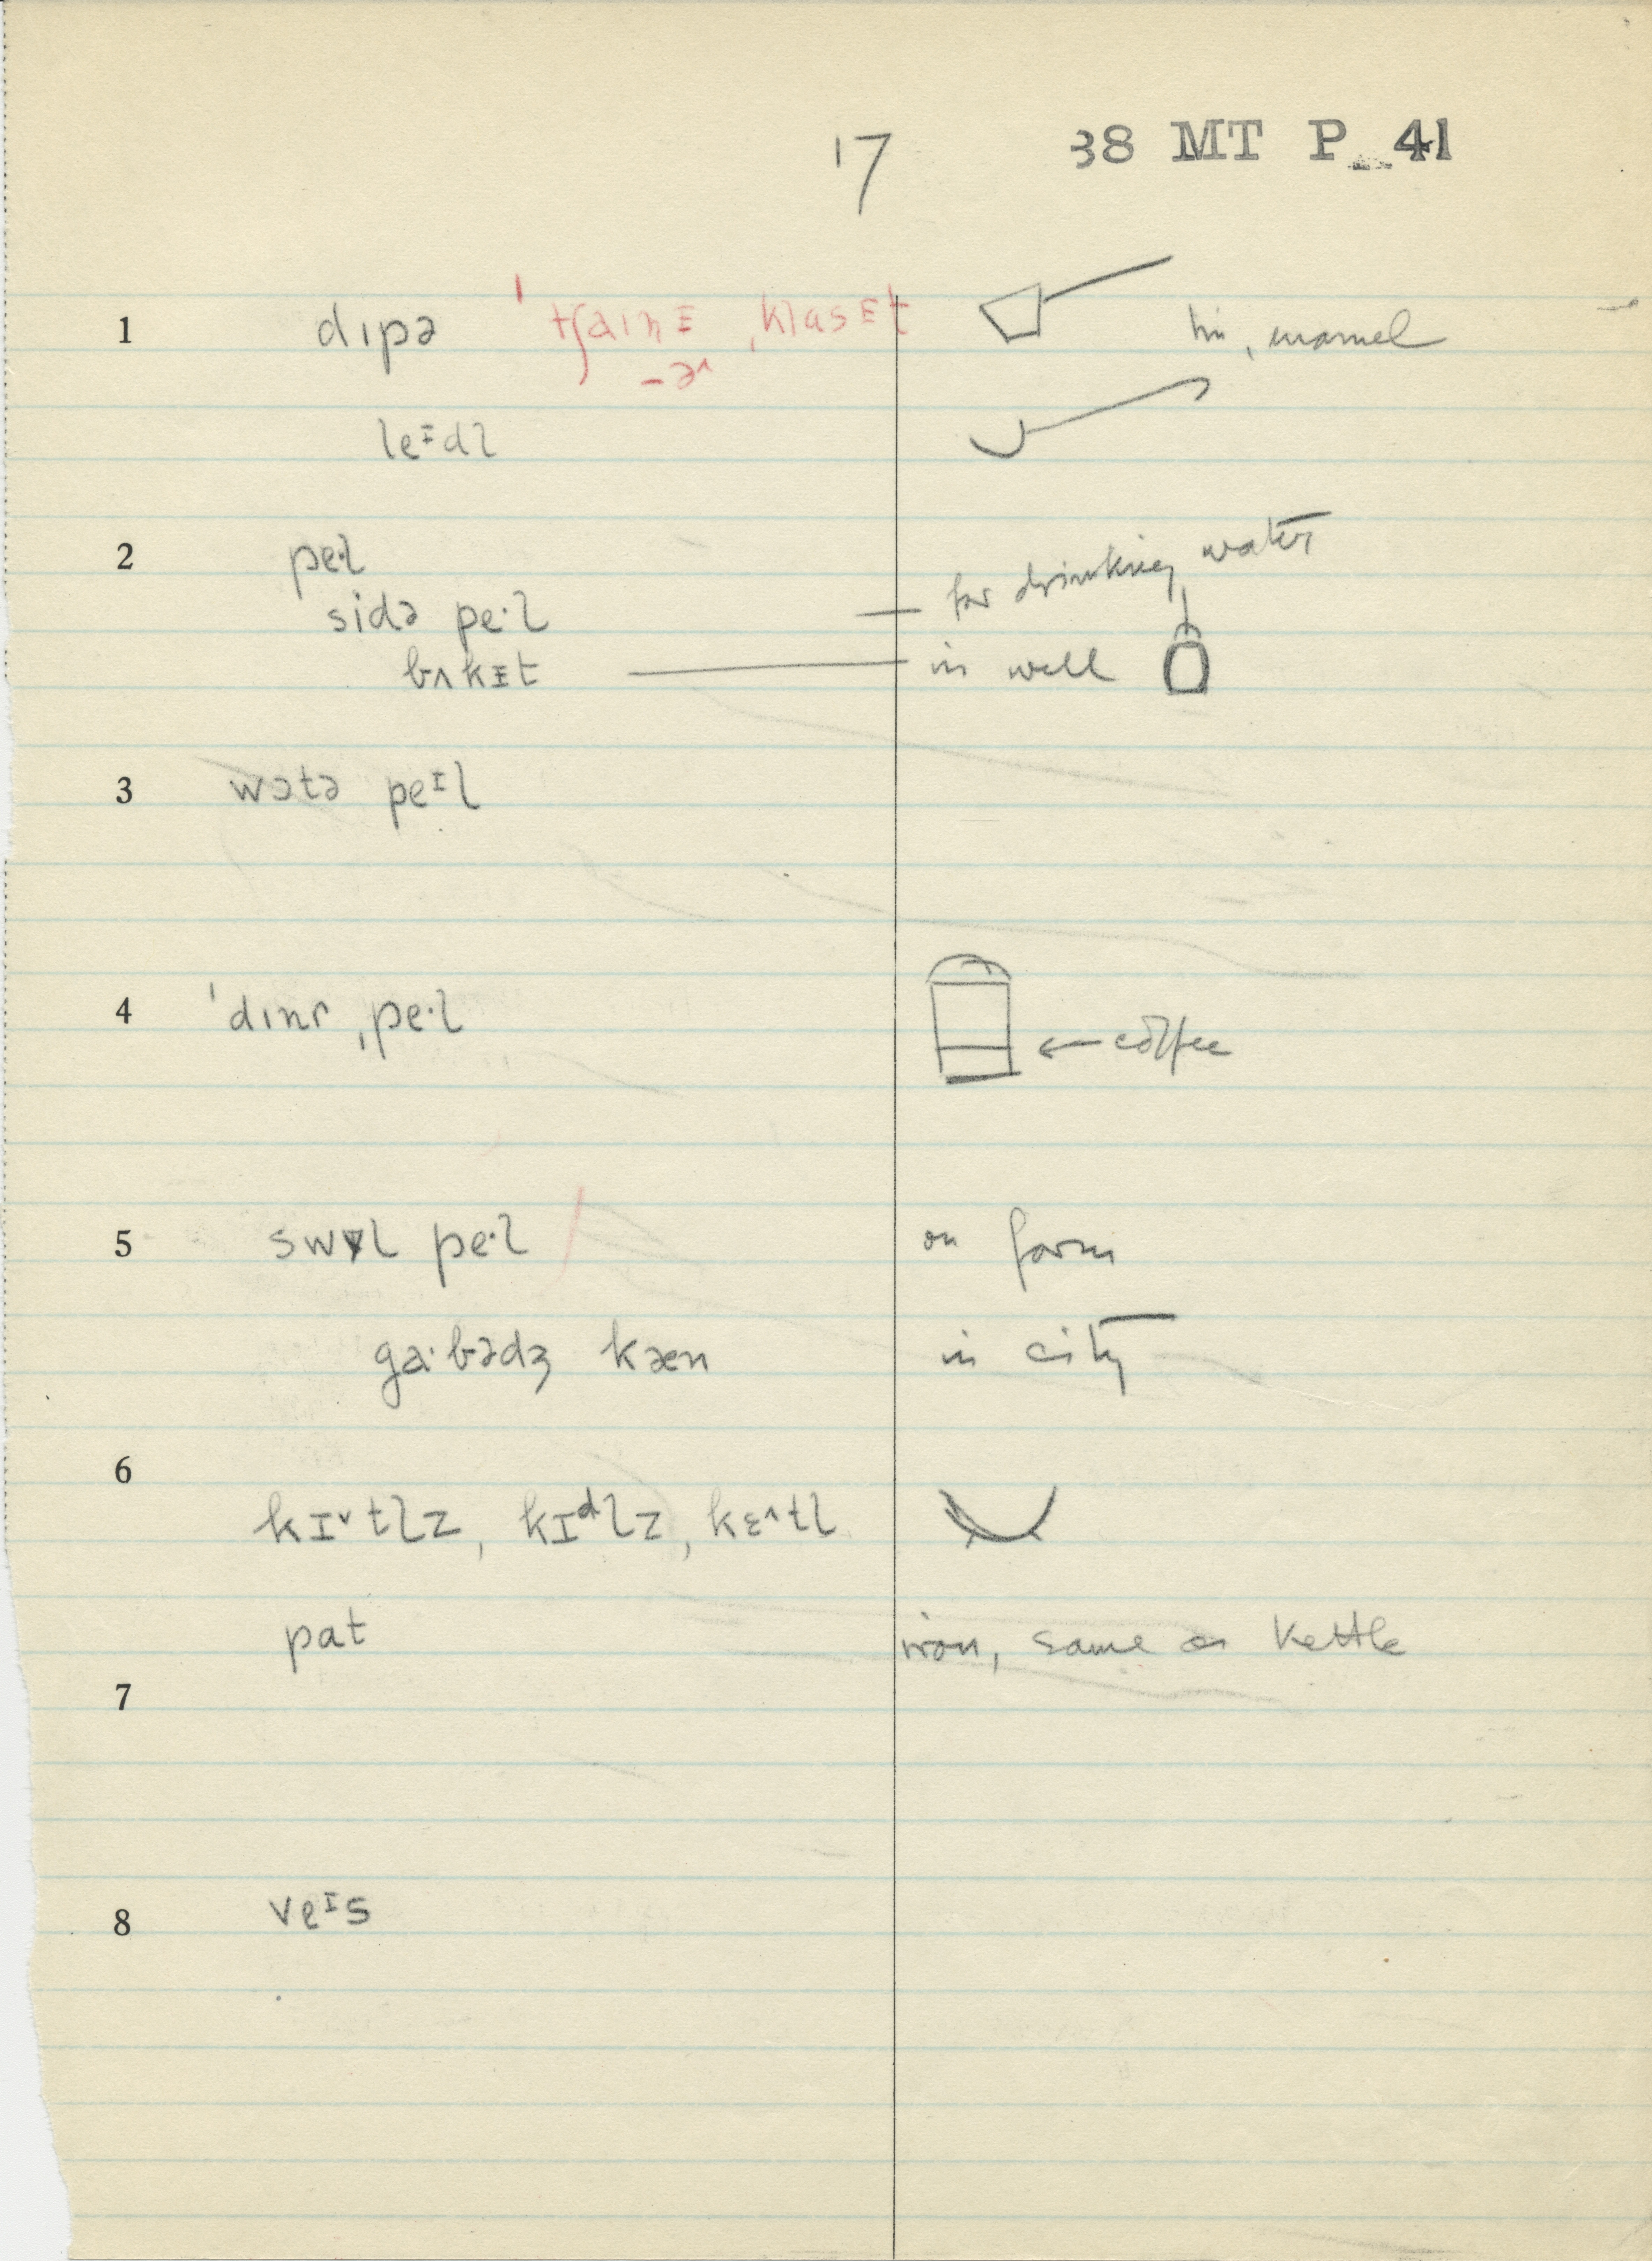 17 38 MT P 41
1 dɪpə ˈtʃaɪnᵻ ˌklasᵻt tin, enamel
-ə^
leᵻdl
2 pe·l for drinking water
sidə pe·l
bʌkᵻt in well
3 wɔtə peᴵl
4 ˈdɪnɚ ˌpe·l ← coffee
5 pe·l on farm
ga·bədʒ kæn in city
6
kɪ˅tlz, kɪᵈlz, kɛ^tl
pat iron, same as kettle
7
8 veᴵs